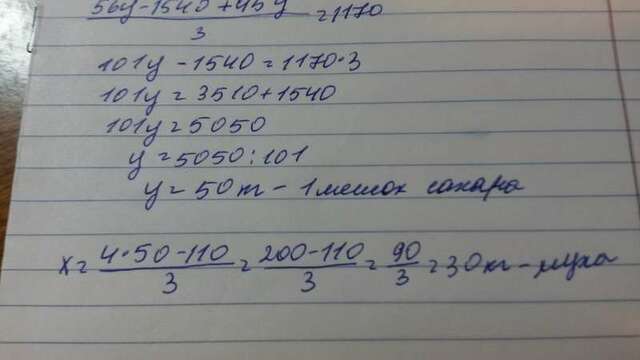 56y-1540+45y / 3 = 1170
101y - 1540 = 1170·3
101y = 3510+1540
101y = 5050
y = 5050 : 101
y = 50 т - 1 мешок сахара
x = 4·50-110 / 3 = 200-110 / 3 = 90 / 3 = 30 кг - мука